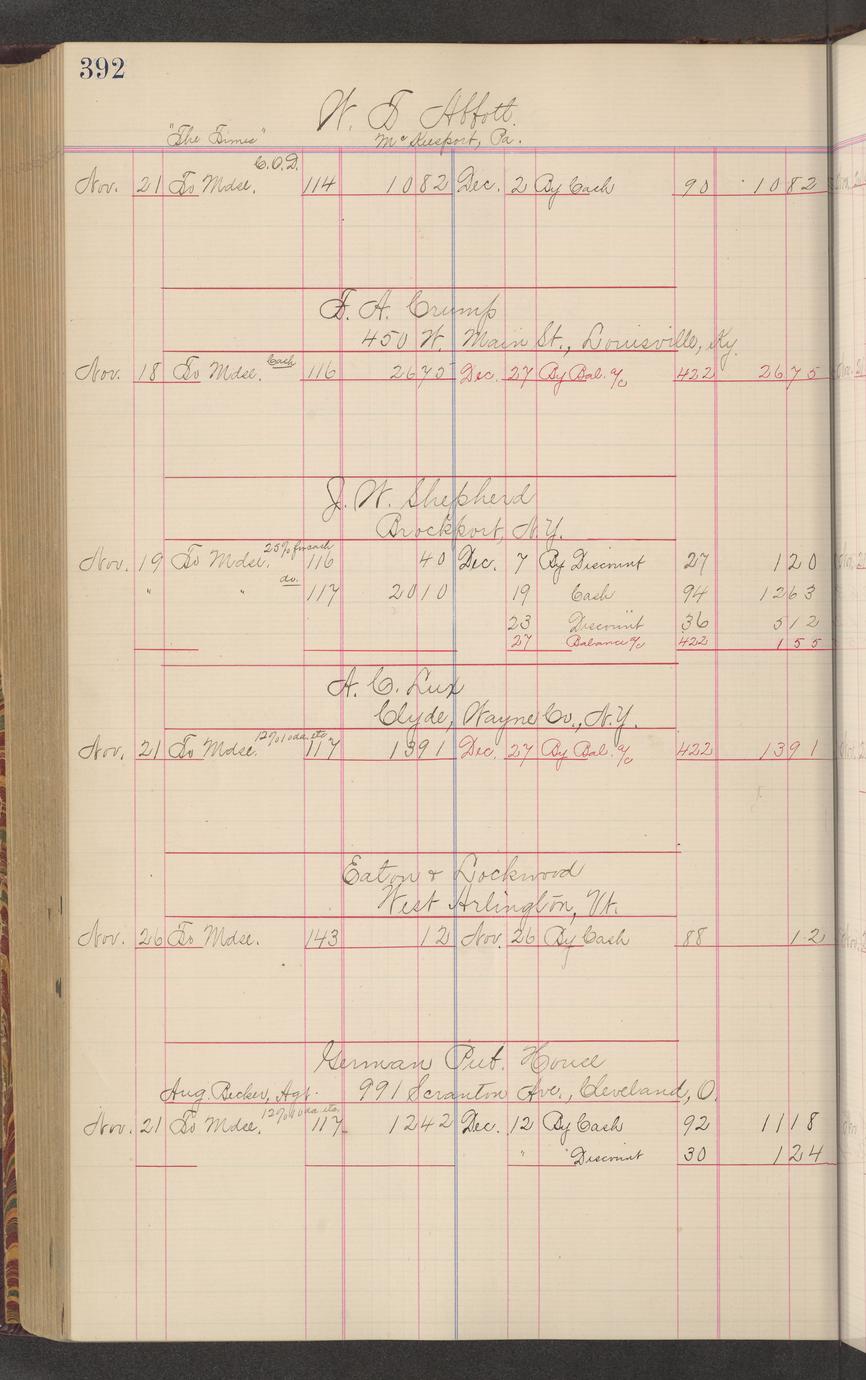 392
W. T. Abbott.
"The Times" McKeesport, Pa.
C.O.D.
Nov. 21 To Mdse. 114 1082 Dec. 2 By Cash 90 1082
F. A. Crump
450 W. Main St., Louisville, Ky.
Nov. 18 To Mdse. Cash 116 2675 Dec. 27 By Bal. a/c 422 2675
J. W. Shepherd
Brockport, N.Y.
Nov. 19 To Mdse. 25% for cash 116 40 Dec. 7 By Discount 27 120
" " do. 117 2010 19 Cash 94 1263
23 Discount 36 512
27 Balance a/c 422 155
A. C. Lux
Clyde, Wayne Co., N.Y.
Nov. 21 To Mdse. 12% 10 da. etc. 117 1391 Dec. 27 By Bal. a/c 422 1391
Eaton & Lockwood
West Arlington, Vt.
Nov. 26 To Mdse. 143 12 Nov. 26 By Cash 88 12
German Pub. House
Aug. Becker, Agt. 991 Scranton Ave., Cleveland, O.
Nov. 21 To Mdse. 12% 10 da. etc. 117 1242 Dec. 12 By Cash 92 1118
" " Discount 30 124